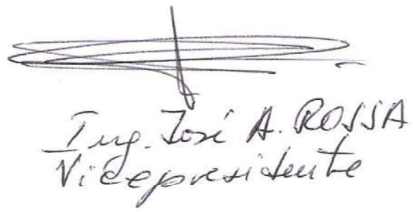 Ing. José A. ROSSA
Vicepresidente